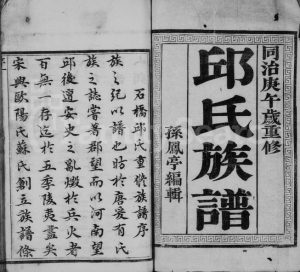 同治庚午歲重修
邱氏族譜
孫鳳亭編輯
石橋邱氏重修族譜序
族之紀以譜也昉於唐爰有氏
族之誌當者郡望而以河南望
邱後遭安史之亂燬於兵火者
百無一存迄於五季陵夷盡矣
宋興歐陽氏蘇氏創立族譜條